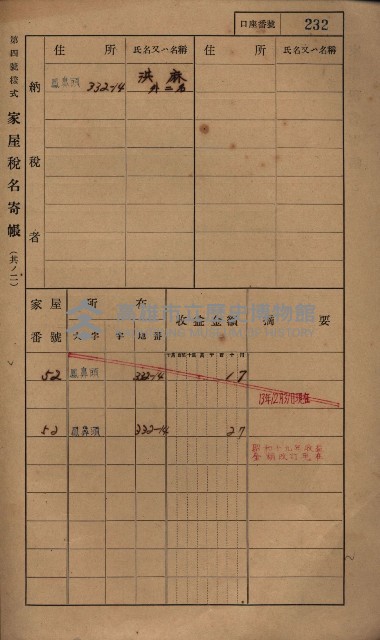 口座番號 232
第四號樣式 家屋稅名寄帳 (共ノ二)
納稅者
住所 氏名又ハ名稱 住所 氏名又ハ名稱
鳳鼻頭 332-14 洪麻
外二名
家屋番號 所在 收益金額 摘要
大字 字 地番
高雄市立歷史博物館
52 鳳鼻頭 332-14 17
13年12月31日現在
52 鳳鼻頭 332-14 27
昭和十九年收益
金額改訂